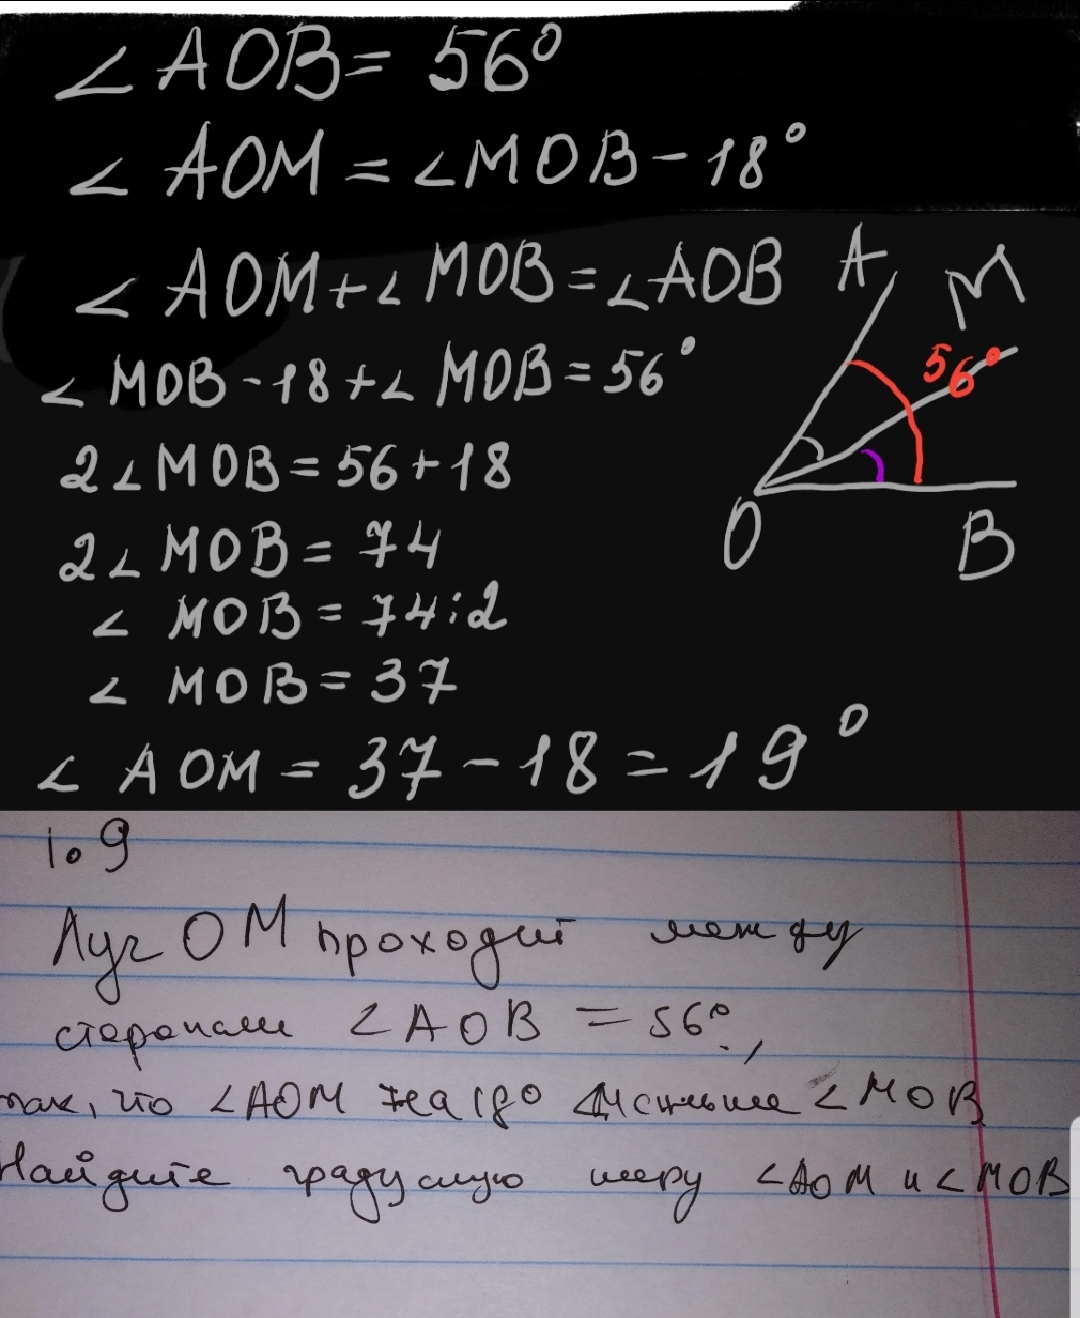 ∠AOB = 56°
∠AOM = ∠MOB - 18°
∠AOM + ∠MOB = ∠AOB
∠MOB - 18 + ∠MOB = 56°
2∠MOB = 56 + 18
2∠MOB = 74
∠MOB = 74 : 2
∠MOB = 37
∠AOM = 37 - 18 = 19°
A M
56°
O B
1.9
Луч OM проходит между
сторонами ∠AOB = 56°,
так, что ∠AOM на 18° меньше ∠MOB
Найдите градусную меру ∠AOM и ∠MOB